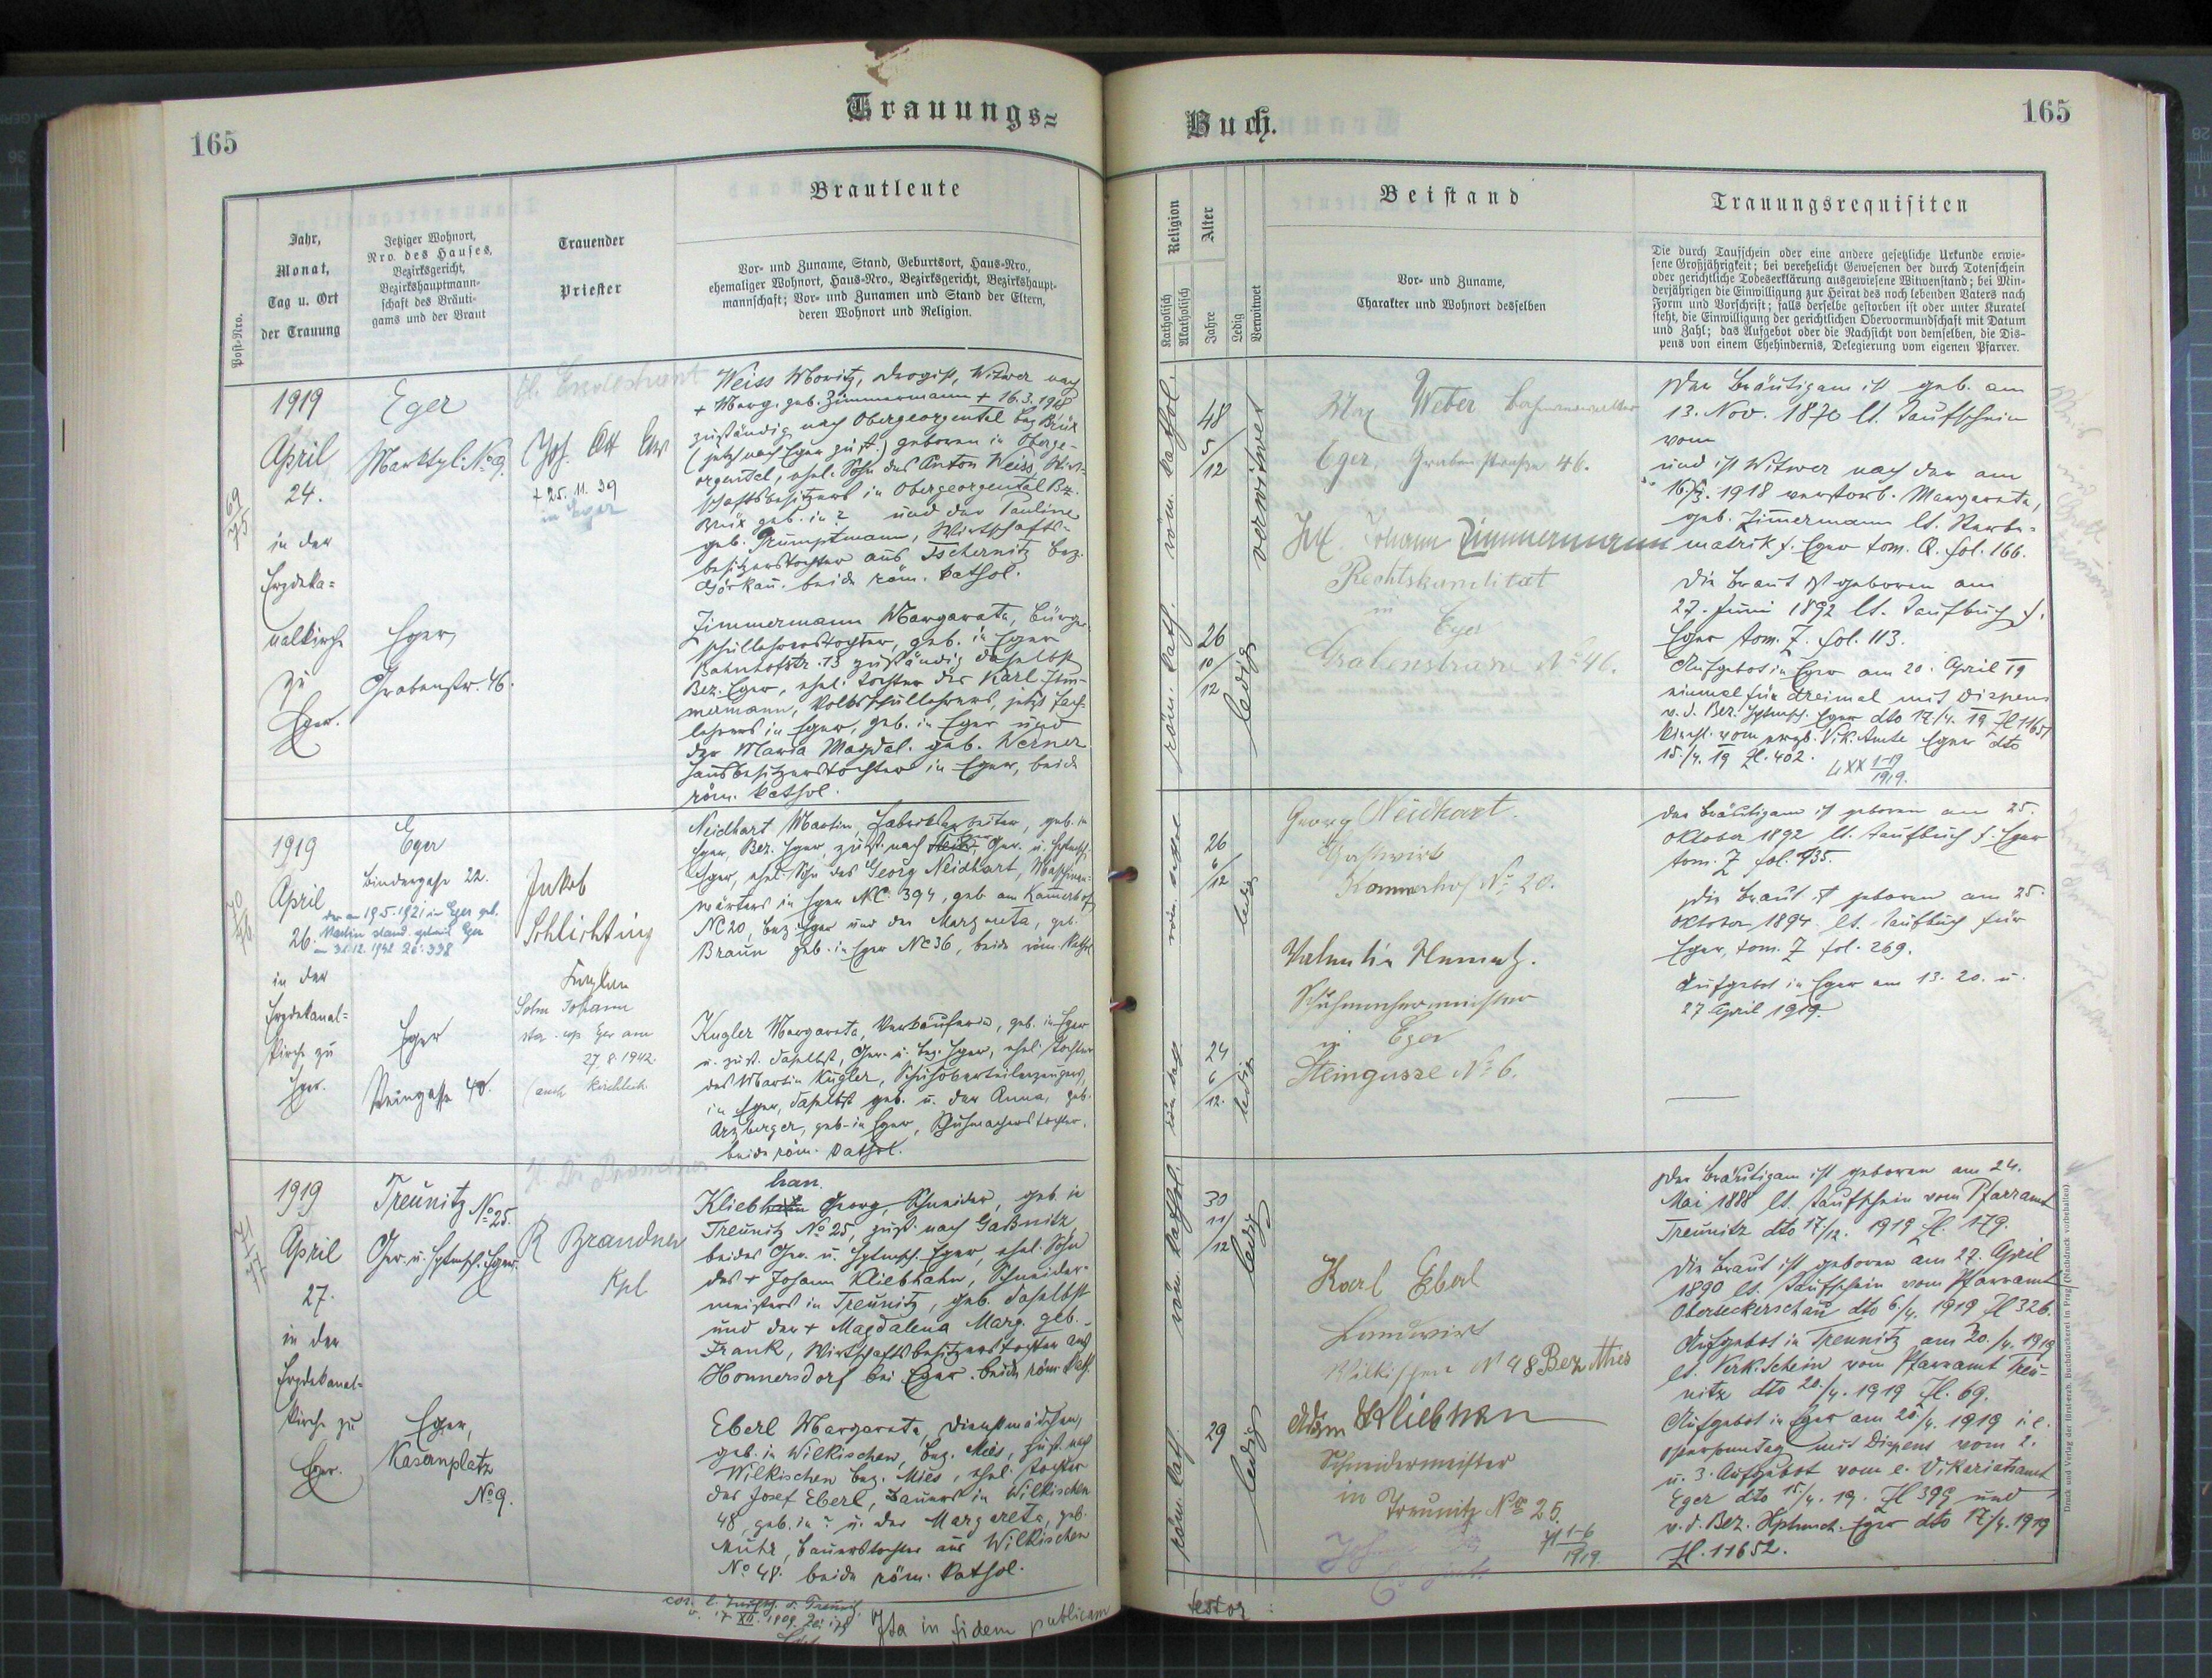 Trauungs=
Buch.
165
165
Post-Nro.
Jahr,
Monat,
Tag u. Ort
der Trauung
Jetziger Wohnort,
Nro. des Hauses,
Bezirksgericht,
Bezirkshauptmann-
schaft des Bräuti-
gams und der Braut
Trauender
Priester
Brautleute
Vor- und Zuname, Stand, Geburtsort, Haus-Nro.,
ehemaliger Wohnort, Haus-Nro., Bezirksgericht, Bezirkshaupt-
mannschaft; Vor- und Zunamen und Stand der Eltern,
deren Wohnort und Religion.
Religion
Katholisch
Akatholisch
Alter
Jahre
Ledig
Verwitwet
Beistand
Vor- und Zuname,
Charakter und Wohnort desselben
Trauungsrequisiten
Die durch Taufschein oder eine andere gesetzliche Urkunde erwie-
sene Großjährigkeit; bei verehelicht Gewesenen der durch Totenschein
oder gerichtliche Todeserklärung ausgewiesene Witwenstand; bei Min-
derjährigen die Einwilligung zur Heirat des noch lebenden Vaters nach
Form und Vorschrift; falls derselbe gestorben ist oder unter Kuratel
steht, die Einwilligung der gerichtlichen Obervormundschaft mit Datum
und Zahl; das Aufgebot oder die Nachsicht von demselben, die Dis-
pens von einem Ehehindernis, Delegierung vom eigenen Pfarrer.
69
75
1919
April
24.
in der
Erzdeka=
nalkirche
zu
Eger.
Eger
Marktpl. No 9.
Eger,
Grabenstr. 46.
Joh. Ott
+ 25. 11. 39
in Eger
Weiss Moritz, Drogist, Witwer nach
+ Marg. geb. Zimmermann + 16.3.1918
zuständig nach Obergeorgental Bez Brüx
(jetzt nach Eger zust.) geboren in Oberge-
orgental, ehel. Sohn des Anton Weiss, Wirt-
schaftsbesitzers in Obergeorgental Bz.
Brüx geb. in ? und der Pauline
geb. Trumptmann, Wirtschafts-
besitzerstochter aus Tschernitz Bez.
Görkau. beide röm. kathol.
Zimmermann Margareta, Bürger-
schullehrerstochter, geb. in Eger
Bahnhofstr. 13 zuständig daselbst
Bez. Eger, ehel. Tochter des Karl Zim-
mermann, Volksschullehrers, jetzt Fach-
lehrers in Eger, geb. in Eger und
der Maria Magdal. geb. Werner
Hausbesitzerstochter in Eger, beide
röm. kathol.
röm. kathol.
röm. kath.
48
5/12
verwitwet
26
10/12
ledig
Max Weber
Eger, Grabenstraße 46.
Johann Zimmermann
Rechtskandidat
in
Eger
Grabenstrasse No 46.
Der Bräutigam ist geb. am
13. Nov. 1870 lt. Taufschein
vom
und ist Witwer nach der am
16./3. 1918 verstorb. Margareta,
geb. Zimmermann lt. Sterbe-
matrik f. Eger tom. Q. fol. 166.
Die Braut ist geboren am
27. Juni 1892 lt. Taufbuch f.
Eger tom. Z. fol. 113.
Aufgebot in Eger am 20. April 19
einmal für dreimal mit Dispens
v. d. Bez. Hptmsch. Eger dto 17./4. 19 Zl 11651
kirchl. vom erzb. Vik. Amte Eger dto
15./4. 19 Zl. 402.
1919.
70
76
1919
April
26.
in der
Erzdekanal=
kirche zu
Eger.
der am 19.5.1921 in Eger geb.
Eger
Bindergasse 22.
Eger
Steingasse 40.
Jakob
Schlichting
Kaplan
Sohn Johann
27. 8. 1942.
(auch kirchlich
Neidhart Martin, Fabriksarbeiter, geb. in
Eger, Bez. Eger, zust. nach Eger Ger. u. Hptmsch.
Eger, ehel. Sohn des Georg Neidhart, Maschinen-
wärters in Eger NC. 394, geb. am Kammerhof
NC 20, Bez. Eger und der Margareta, geb.
Braun geb. in Eger NC 36, beide röm. kathol.
Kugler Margareta, Verkäuferin, geb. in Eger
u. zust. daselbst, Ger. u. Bez. Eger, ehel. Tochter
des Martin Kugler, Schuhoberteilerzeugers,
in Eger, daselbst geb. u. der Anna, geb.
Arzberger, geb. in Eger, Schuhmacherstochter,
beide röm. kathol.
röm. kathol.
röm. kath.
26
6/12
ledig
24
6/12.
ledig
Georg Neidhart.
Gastwirt
Kammerhof No 20.
Valentin
Schuhmachermeister
in Eger
Steingasse No 6.
Der Bräutigam ist geboren am 25.
Oktober 1892 lt. Taufbuch f. Eger
tom. Z fol. 135.
Die Braut ist geboren am 25.
Oktober 1894 lt. Taufbuch für
Eger, tom. Z fol. 269.
Aufgebot in Eger am 13. 20. u.
27 April 1919.
71
77
1919
April
27.
in der
Erzdekanal=
kirche zu
Eger.
Treunitz No 25.
Ger. u. Hptmsch. Eger.
Eger,
Kasernplatz
No 9.
R Brandner
Kpl
han.
Kliebhahn Georg, Schneider, geb. in
Treunitz No 25, zust. nach Gaßnitz,
beides Ger. u. Hptmsch. Eger, ehel. Sohn
des + Johann Kliebhahn, Schneider-
meisters in Treunitz, geb. daselbst
und der + Magdalena Marg. geb.
Frank, Wirtschaftsbesitzerstochter aus
Honnersdorf bei Eger. beide röm. kath.
Eberl Margareta, Dienstmädchen,
geb. in Wilkischen, Bez. Mies, zust. nach
Wilkischen Bez. Mies, ehel. Tochter
des Josef Eberl, Bauers in Wilkischen
48, geb. in ? u. der Margareta, geb.
Muhr, Bauerstochter aus Wilkischen
No 48. beide röm. kathol.
röm. kathol.
röm. kath.
30
11/12
ledig
29
ledig
Karl Eberl
Landwirt
Wilkischen No 48 Bez Mies
Adam Kliebhan
Schneidermeister
in Treunitz No 25.
1919.
Der Bräutigam ist geboren am 24.
Mai 1888 lt. Taufschein vom Pfarramt
Treunitz dto 17./12. 1919 Zl. 179.
Die Braut ist geboren am 27. April
1890 lt. Taufschein vom Pfarramt
Obersekerschan dto 6./4. 1919 Zl 326.
Aufgebot in Treunitz am 20./4. 1919
lt. Verk. Schein vom Pfarramt Treu-
nitz dto 20./4. 1919 Zl. 69.
Aufgebot in Eger am 20./4. 1919 i. e.
Ostersonntag mit Dispens vom 2.
u. 3. Aufgebot vom e. Vikariatsamt
Eger dto 15./4. 19. Zl 399 und
v. d. Bez. Hptmsch. Eger dto 17./4. 1919
Zl. 11652.
Druck und Verlag der fürsterzb. Buchdruckerei in Prag (Nachdruck vorbehalten).
Ita in fidem publicam
testor :